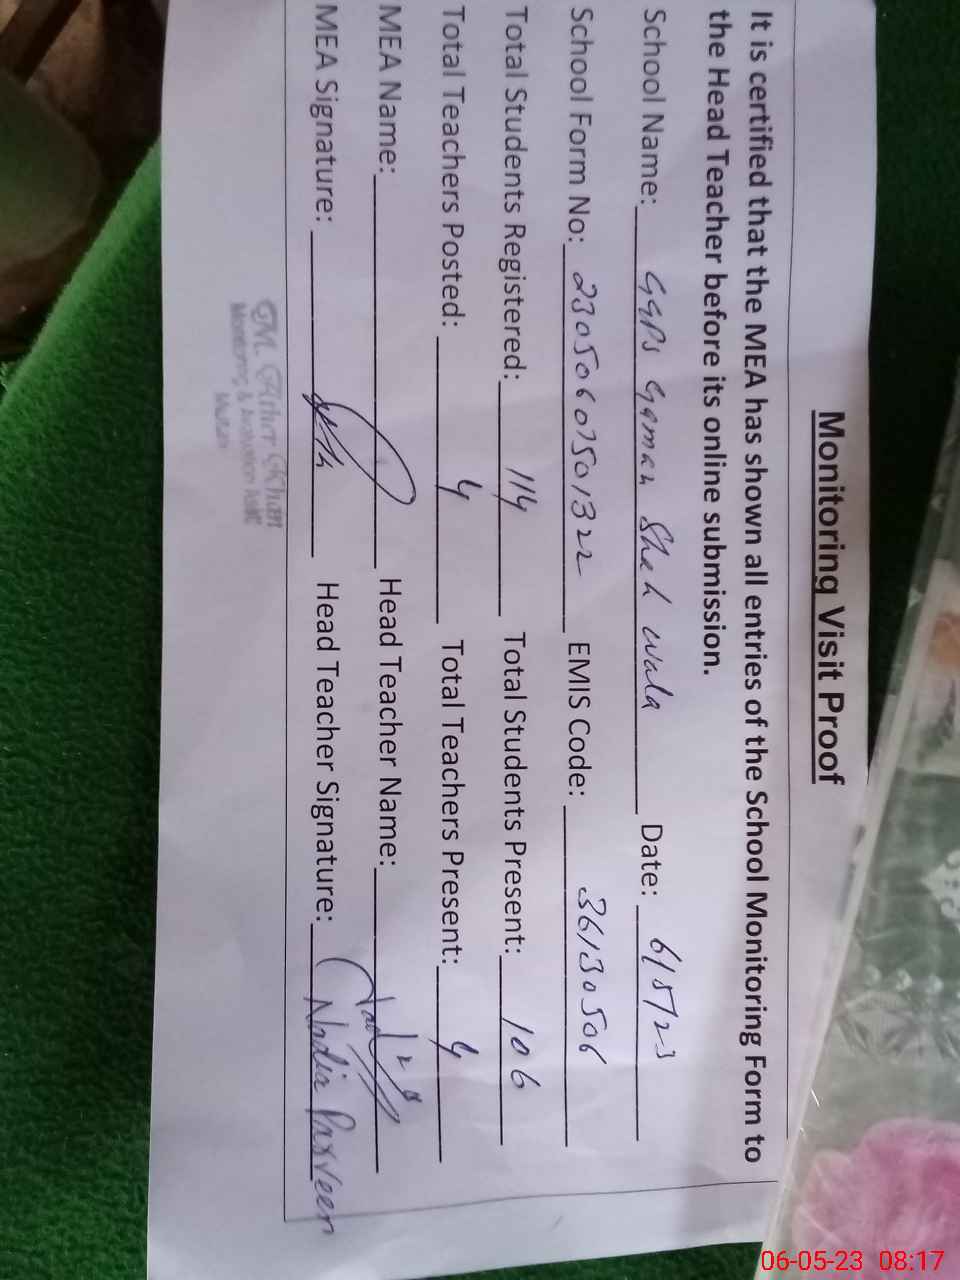 Monitoring Visit Proof
It is certified that the MEA has shown all entries of the School Monitoring Form to
the Head Teacher before its online submission.
School Name: GGPS Gaman Shah wala Date: 6/5/23
School Form No: 23050607501322 EMIS Code: 36130506
Total Students Registered: 114 Total Students Present: 106
Total Teachers Posted: 4 Total Teachers Present: 4
MEA Name: Head Teacher Name:
MEA Signature: Head Teacher Signature: Nadia Parveen
M. Ather Khan
Monitoring &
Multan
06-05-23 08:17